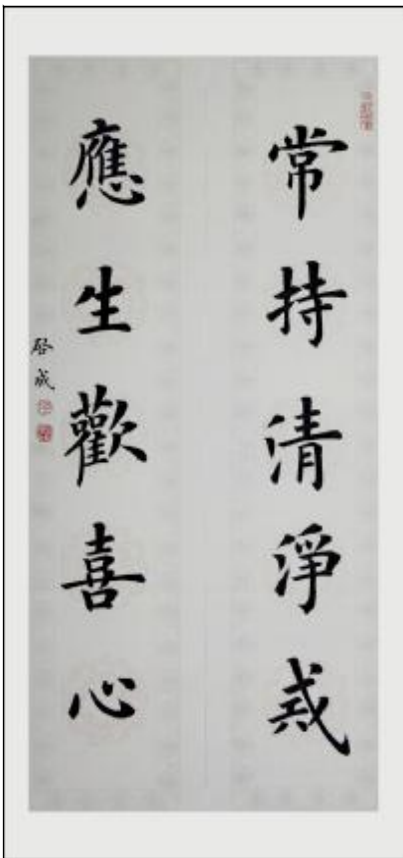 常持清淨戒
應生歡喜心
啓成